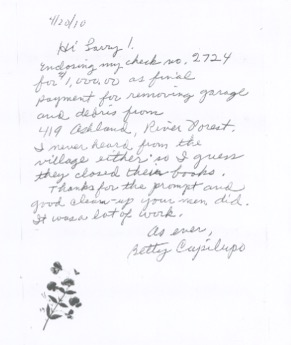 4/20/10
Hi Larry!
Enclosing my check no. 2724
for $1,000.00 as final
payment for removing garage
and debris from
419 Ashland, River Forest.
I never heard from the
village either so I guess
they closed their books.
Thanks for the prompt and
good clean-up your men did.
It was a lot of work.
As ever,
Betty Capilupo